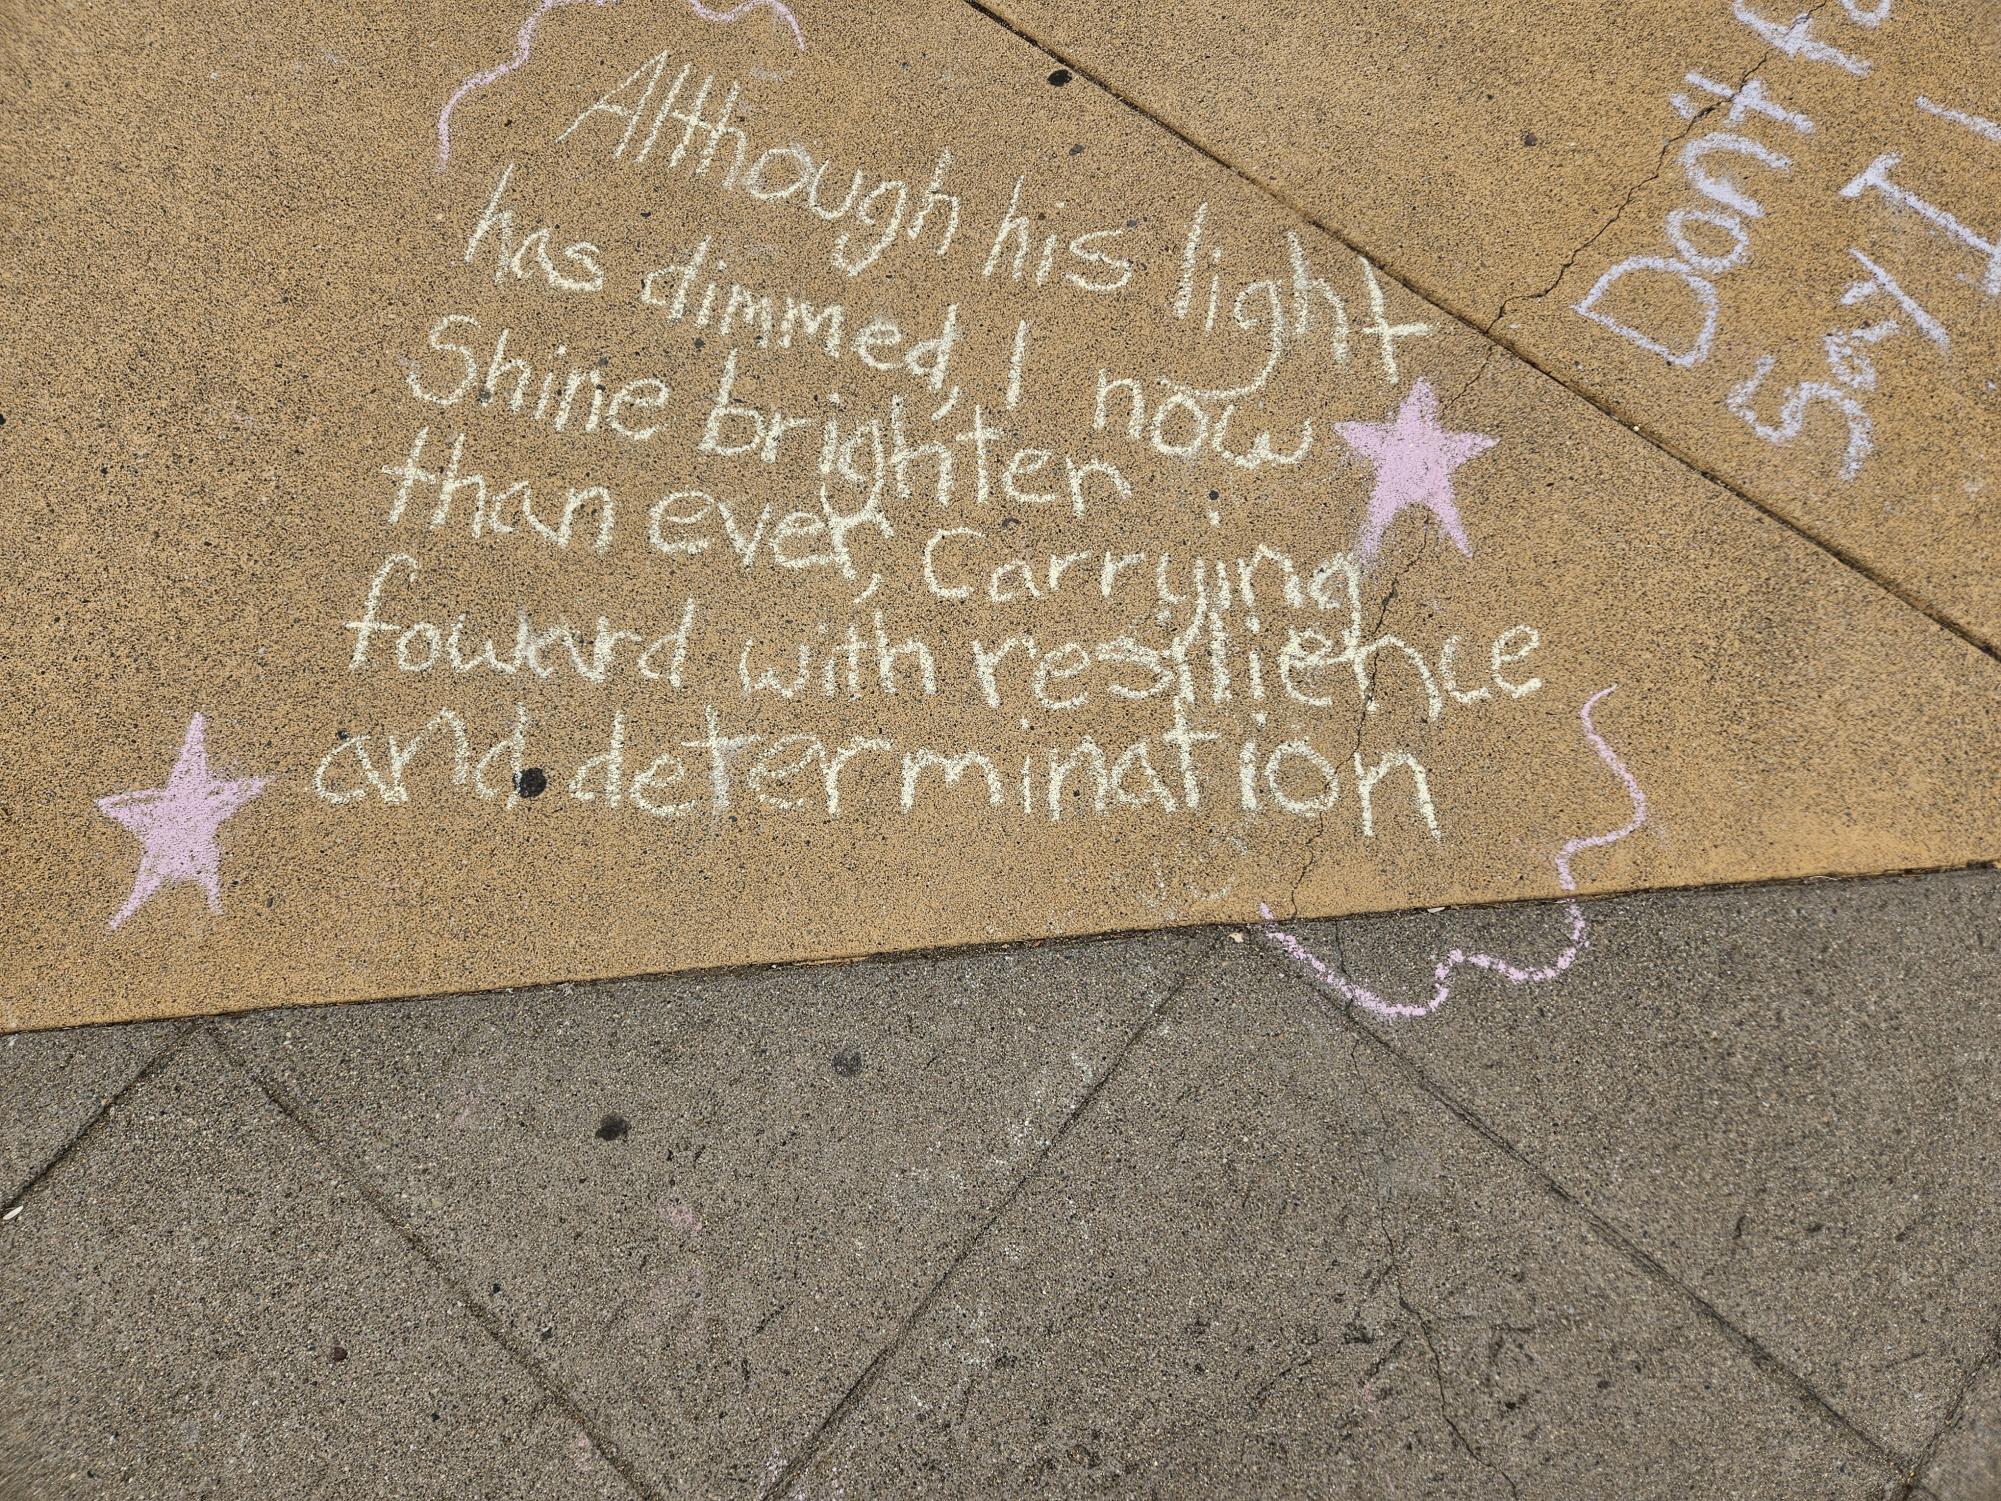 Although his light
has dimmed, I now
Shine brighter
than ever, Carrying
foward with resilience
and determination
Don't
Say I